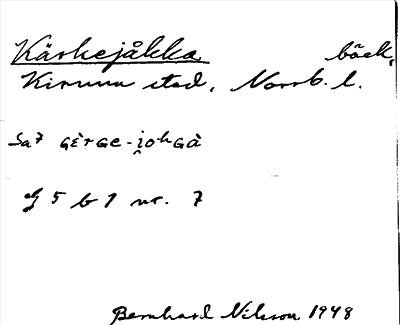 Kärkejåkka bäck,
Kiruna stad, Norrb. l.
Sa7 GÈrGe-i̯ohGà
g 5 b 1 nr. 7
Bernhard Nilsson 1948